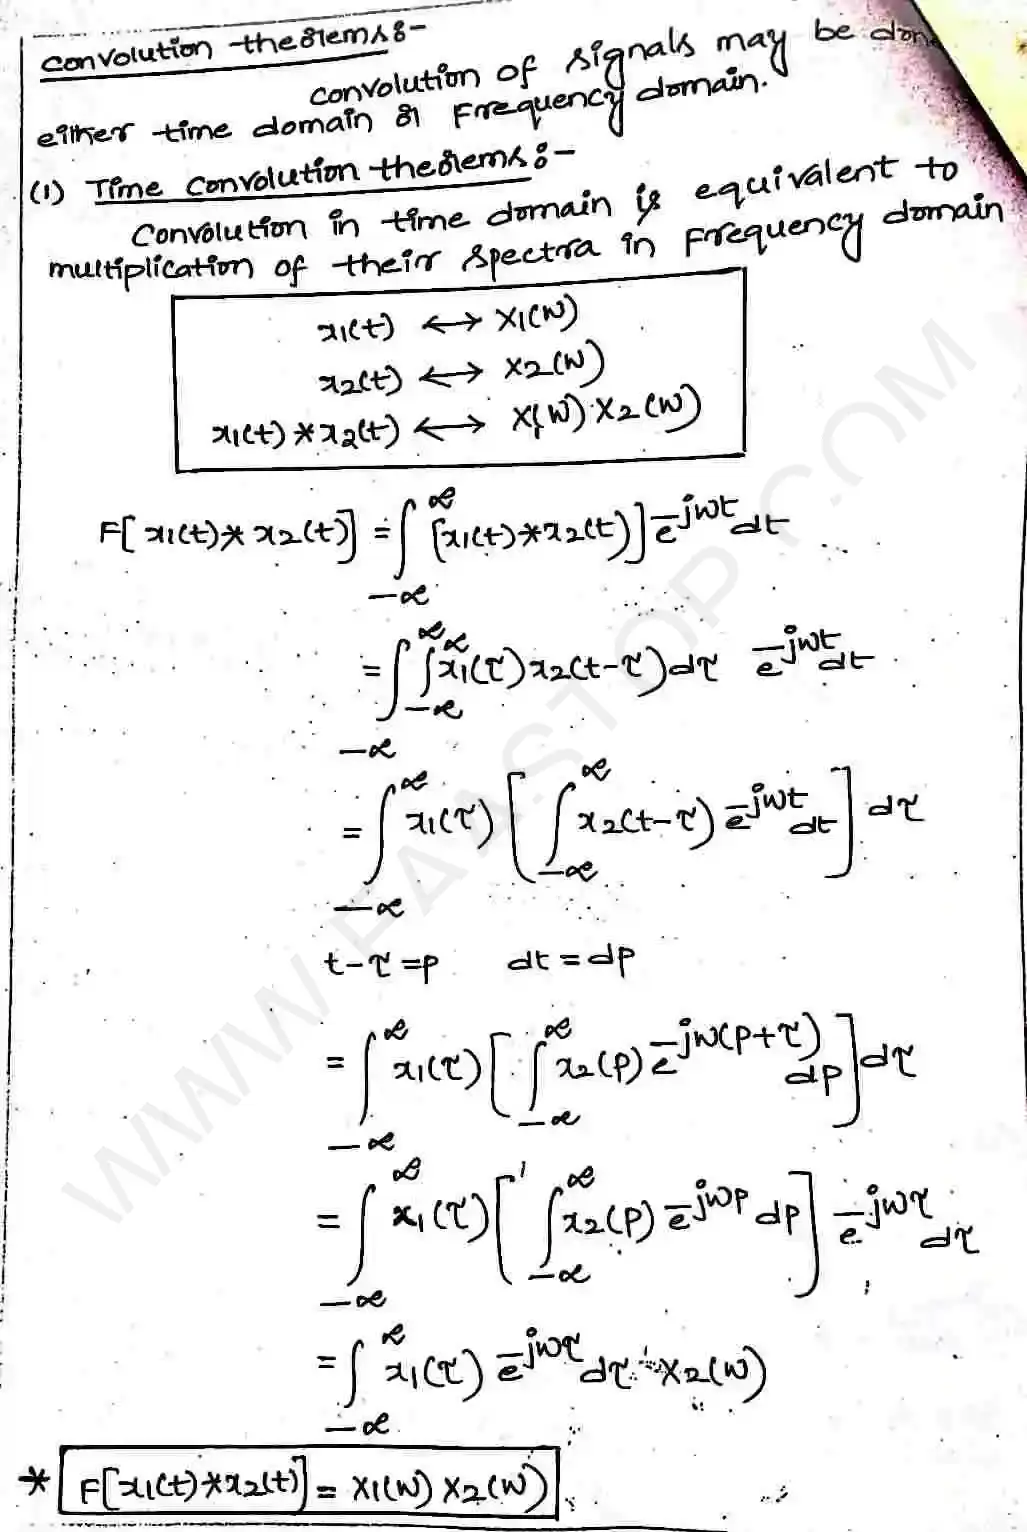 Convolution theorems :-
Convolution of signals may be done
either time domain or Frequency domain.
(1) Time convolution theorems :-
Convolution in time domain is equivalent to
multiplication of their spectra in Frequency domain
x1(t) ↔ X1(W)
x2(t) ↔ X2(W)
x1(t) * x2(t) ↔ X1(W) · X2(W)
F[x1(t) * x2(t)] = ∫_{-∞}^{∞} [x1(t) * x2(t)] e^{-jwt} dt
= ∫_{-∞}^{∞} ∫_{-∞}^{∞} x1(τ) x2(t-τ) dτ e^{-jwt} dt
= ∫_{-∞}^{∞} x1(τ) [∫_{-∞}^{∞} x2(t-τ) e^{-jwt} dt] dτ
t-τ = p dt = dp
= ∫_{-∞}^{∞} x1(τ) [∫_{-∞}^{∞} x2(p) e^{-jw(p+τ)} dp] dτ
= ∫_{-∞}^{∞} x1(τ) [∫_{-∞}^{∞} x2(p) e^{-jwp} dp] e^{-jwτ} dτ
= ∫_{-∞}^{∞} x1(τ) e^{-jwτ} dτ · X2(W)
* F[x1(t) * x2(t)] = X1(W) X2(W)
WWW.FAASTOP.COM